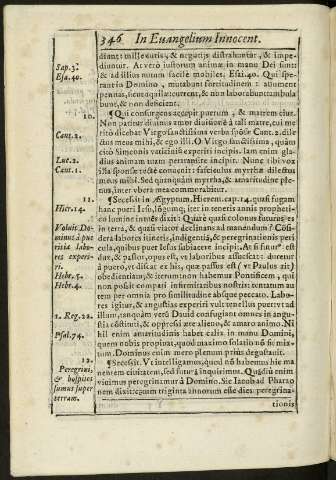 346 In Euangelium Innocent.
diunt: mille curis, & negotijs distrahuntur, & impe-
diuntur. At verò iustorum animæ in manu Dei sunt:
& ad illius nutum facilè mobiles. Esai.40. Qui spe-
rant in Domino, mutabunt fortitudinem: assument
pennas, sicut aquilæ: current, & non laborabunt: ambula
bunt, & non deficient.
Sap.3.
Esa.40.
10.
¶ Qui consurgens accepit puerum, & matrem eius.
Non patitur diuinus amor diuisionē à tali matre, cui me
ritò dicebat Virgo sanctissima verba spōsæ Cant.2. dile
ctus meus mihi, & ego illi. O Virgo sanctissima, quàm
citò Simeonis vaticiniū experiri incipis. Iam enim gla-
dius animam tuam pertransire incipit. Nunc tibi vox
illa sponsæ rectè conuenit: fasciculus myrrhæ dilectus
meus mihi. Sed quanquam myrrha, & amaritudine ple-
nus, inter vbera mea commorabitur.
Cant.2.
Luc.2.
Cant.1.
11.
¶ Secessit in Ægyptum. Hierem. cap.14. quasi fugam
hanc pueri Iesu, longum, iter in teneris annis propheti-
co lumine intuēs dixit: Quare quasi colonus futurus es
in terra, & quasi viator declinans ad manendum? Cōsi-
dera labores itineris, indigentiā, & peregrinationis peri
cula, quibus puer Iesus subiacere incipit. At si futurº est
dux, & pastor, opus est, vt laboribus assuescat: duretur
à puero, vt discat ex his, quæ passus est (vt Paulus ait)
obedientiam, & iterum: non habemus Pontificem, qui
non possit compati infirmitatibus nostris: tentatum au
tem per omnia pro similitudine absque peccato. Labo-
res igitur, & angustias experiri vult tenellus puer: vt ad
illam, tanquam verū Dauid confugiant omnes in angu-
stia cōstituti, & oppressi ære alieno, & amaro animo. Ni
hil enim amaritudinis habet calix in manu Domini,
quem nobis propinat, quod maximo solatio nō sic mix-
tum. Dominus enim mero plenum prius degustauit.
Hier.14.
Voluit Do-
minus à pue
ritia labo-
res experi-
ri.
Hebr.5.
Hebr.4.
2. Reg.22.
Psal.74.
12.
¶ Secessit. Vt intelligamus, quòd nō habemus hîc ma
nentem ciuitatem, sed futurā inquirimus. Quādiu enim
viuimus peregrinamur à Domino. Sic Iacob ad Pharao
nem dixit: centum triginta annorum esse dies peregrina-
tionis
Peregrini,
& hospites
sumus super
terram.